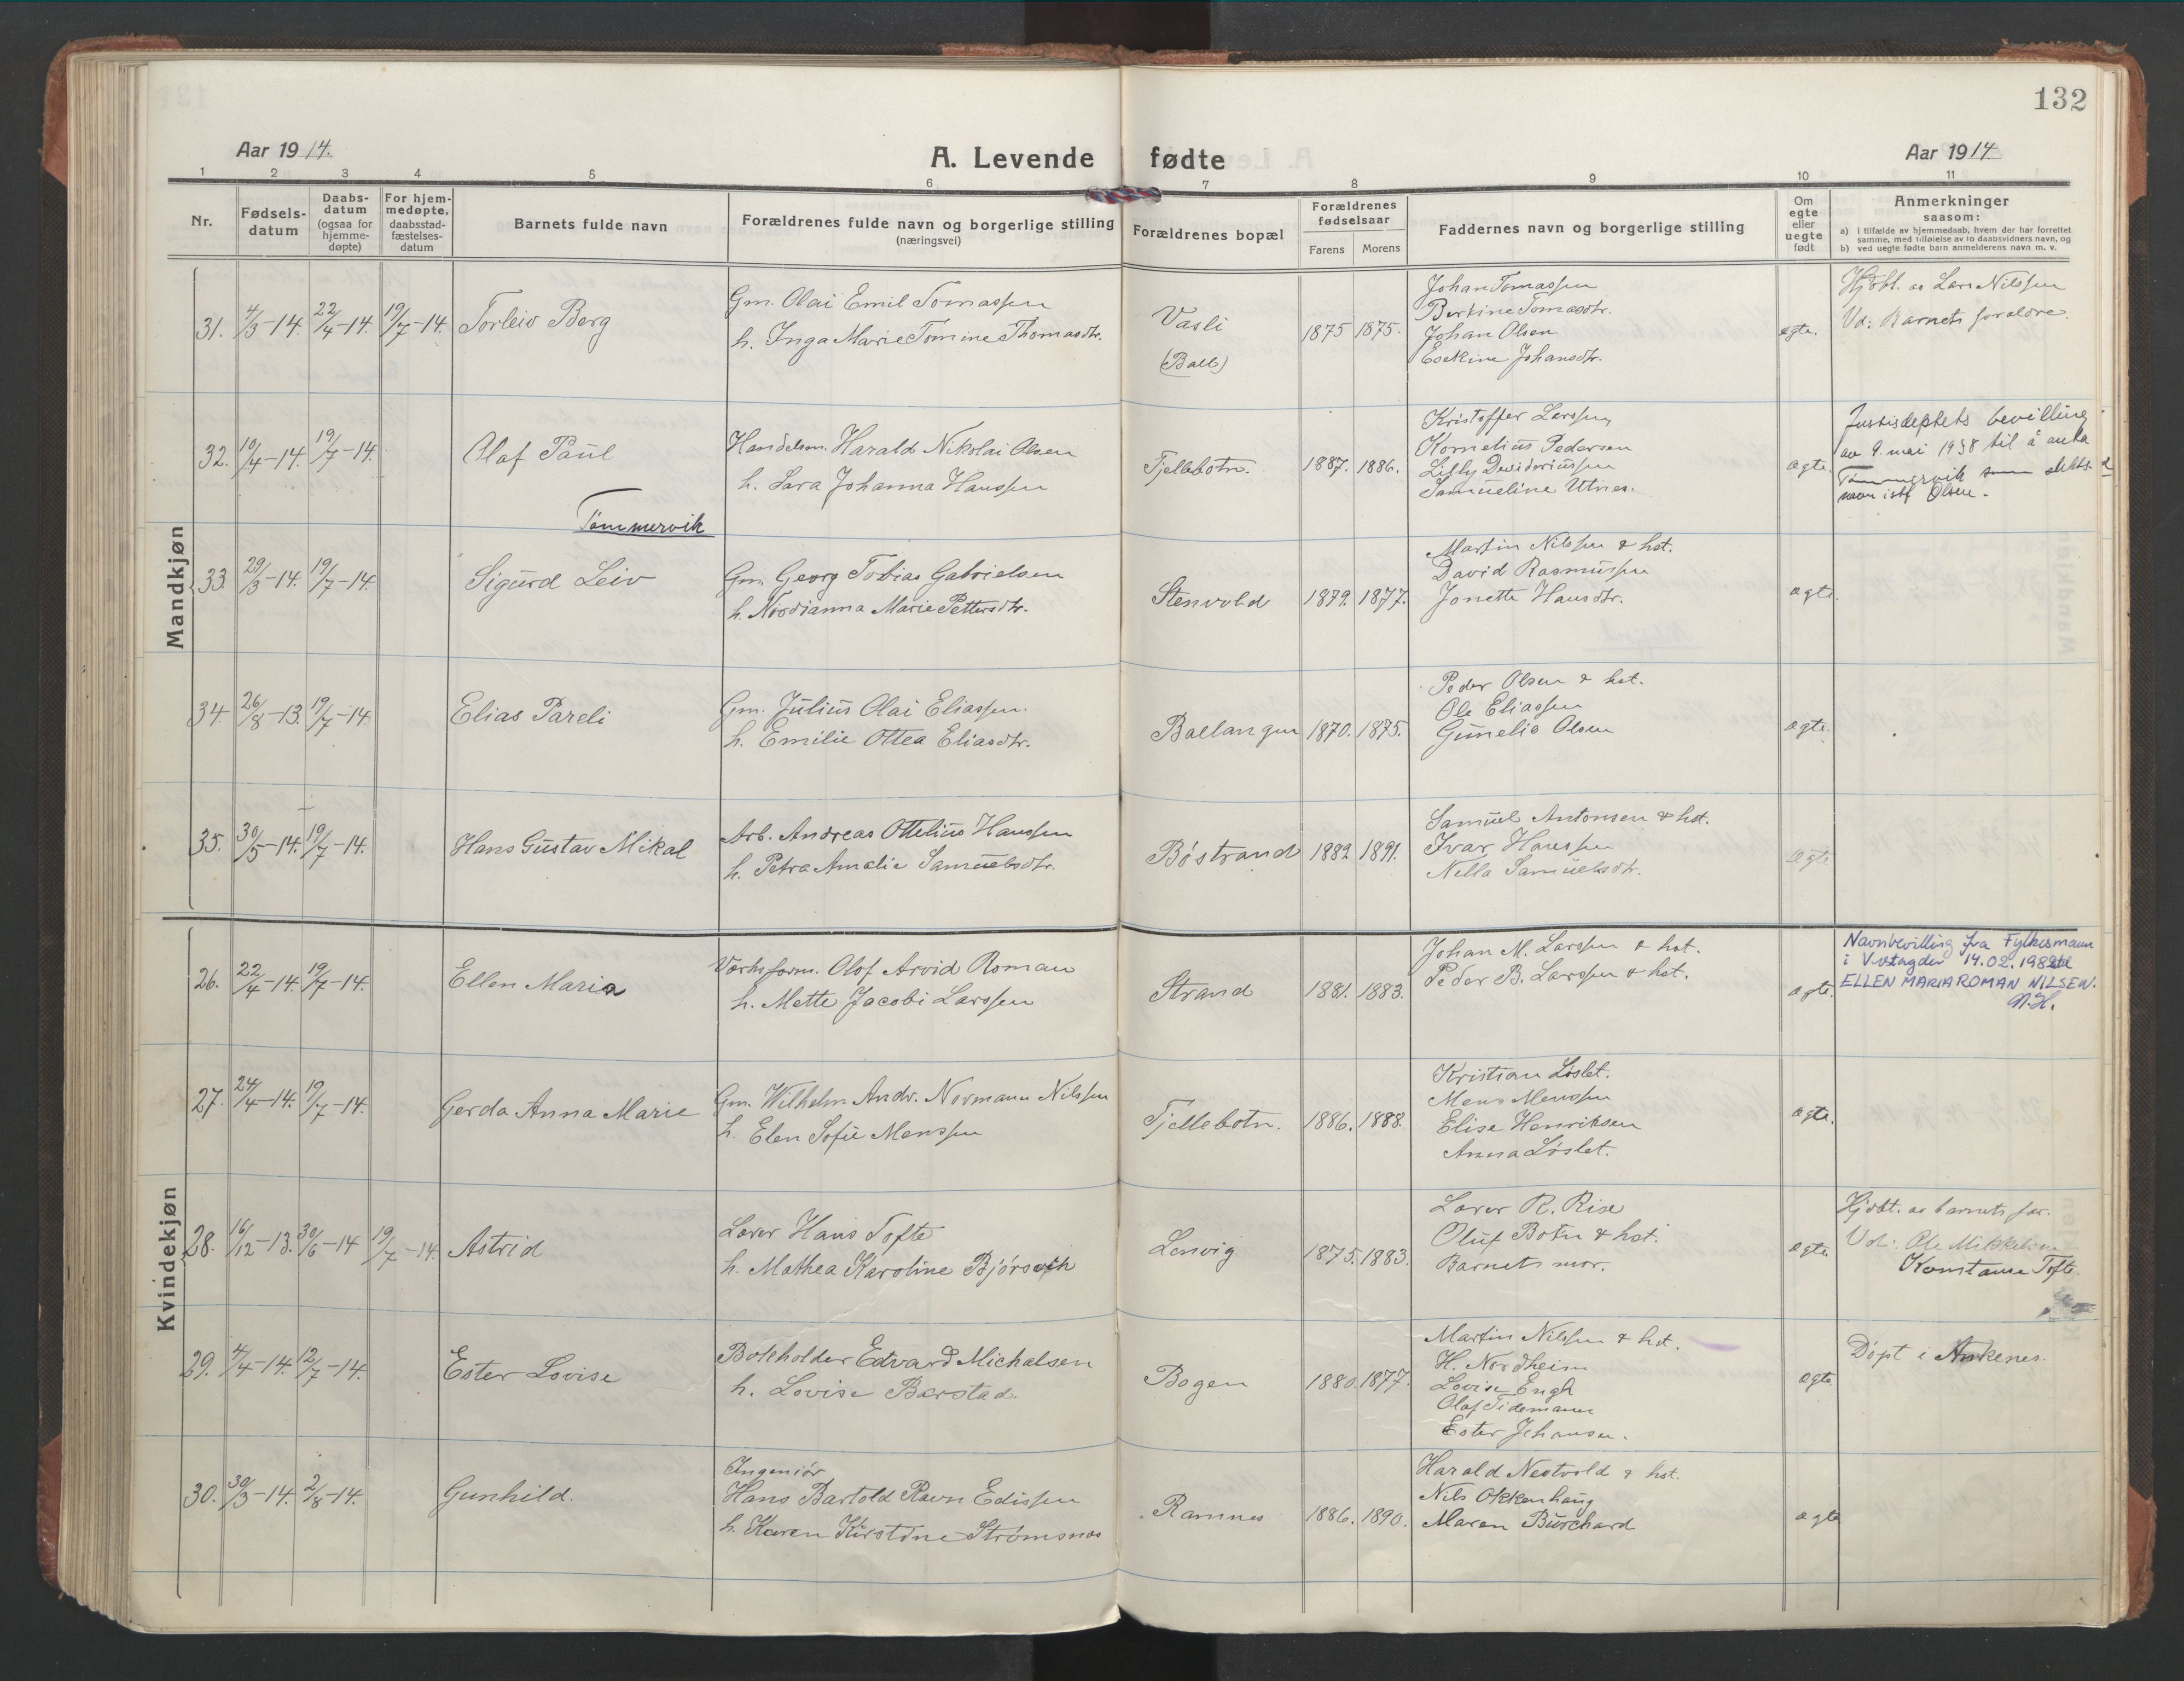 132
Aar 1914.
A. Levende fødte
Aar 1914
1 2 3 4 5 6 7 8 9 10 11
Nr.
Fødsels-
datum
Daabs-
datum
(ogsaa for
hjemme-
døpte)
For hjem-
medøpte,
daabsstad-
fæstelses-
datum
Barnets fulde navn
Forældrenes fulde navn og borgerlige stilling
(næringsvei)
Forældrenes bopæl
Forældrenes
fødselsaar
Farens Morens
Faddernes navn og borgerlige stilling
Om
egte
eller
uegte
født
Anmerkninger
saasom:
a) i tilfælde av hjemmedaab, hvem der har forrettet
samme, med tilføielse av to daabsvidners navn, og
b) ved uegte fødte barn anmelderens navn m. v.
Mandkjøn
31. 4/3-14. 22/4-14. 19/7-14. Torleiv Berg
Gm. Olai Emil Tomassen
h. Inga Marie Tomine Thomasdtr.
Vasli
(Ball)
1875 1875.
Johan Tomassen
Berkine Tomasdtr.
Johan Olsen
Eskine Johansdtr.
egte.
Hjdbt. av Lars Nilssen
Vd: Barnets foraldre.
32. 10/4-14. 19/7-14. Olaf Paul
Tømmervik
Handelsm. Harald Nikolai Olsen
h. Sara Johanna Hanssen
Tjellebotn.
1887. 1886.
Kristoffer Larssen
Kornelius Pedersen
Lilly Davidoriussen
Samueline Utnes.
ægte.
Justisdeptets bevilling
av 9. mai 1938 til å anta
Tømmervik som slekts-
navn istf Olsen.
33. 29/3-14. 19/7-14. Sigurd Leiv
Gm. Georg Tobias Gabrielsen
h. Nordianna Marie Pettersdtr.
Stenvold
1879. 1877.
Martin Nilssen & hst.
David Rasmussen
Jonette Hansdtr.
ægte.
34. 26/8-13. 19/7-14. Elias Pareli
Gm. Julius Olai Eliassen.
h. Emilie Ottea Eliasdtr.
Ballangen
1870. 1875.
Peder Olsen & hst.
Ole Eliassen
Gunelie Olsen
ægte.
35. 30/5-14. 19/7-14. Hans Gustav Mikal
Arb. Andreas Ottelius Hanssen
h. Petra Amalie Samuelsdtr.
Bøstrand
1882 1891.
Samuel Antonsen & hst.
Ivar Hanssen
Nella Samuelsdtr.
ægte
Kvindekjøn
26. 22/4-14. 19/7-14. Ellen Maria
Værksform. Olof Arvid Roman
h. Mette Jacobi Larssen
Strand
1881. 1883.
Johan M. Larssen & hst.
Peder B. Larssen & hst.
ægte.
Navnbevilling fra Fylkesmann
i Vestagder 14.02.1982 til
ELLEN MARIA ROMAN NILSEN.
N.H.
27. 24/4-14. 19/7-14. Gerda Anna Marie
Gm. Wilhelm Andr. Normann Nilssen
h. Elen Sofie Menssen
Tjellebotn.
1886. 1888.
Kristian Løslet.
Mens Menssen
Elise Henriksen
Anna Løslet.
ægte.
28. 16/12-13. 30/6-14 19/7-14. Astrid
Lærer Hans Tofte
h. Mathea Karoline Bjørsvik
Lenvig
1875. 1883.
Lærer R. Rise
Oluf Botn & hst.
Barnets mor.
ægte.
Hjdbt. av barnets far.
Vd: Ole Mikkelsen
Konstanse Tofte.
29. 4/4-14. 12/7-14. Ester Lovise
Bokholder Edvard Michalsen
h. Lovise Barstad.
Bogen
1880 1877.
Martin Nilssen & hst.
H. Nordheim
Lovise Engh
Olaf Tidemann
Ester Johansen.
ægte
Døpt i Ankenes.
30. 30/3-14. 2/8-14. Gunhild.
Ingeniør
Hans Bartold Ravn Edissen
h. Karen Kirstine Strømsnes
Ramnes
1886. 1890.
Harald Nestvold & hst.
Nils Okkenhaug
Maren Burchard
ægte